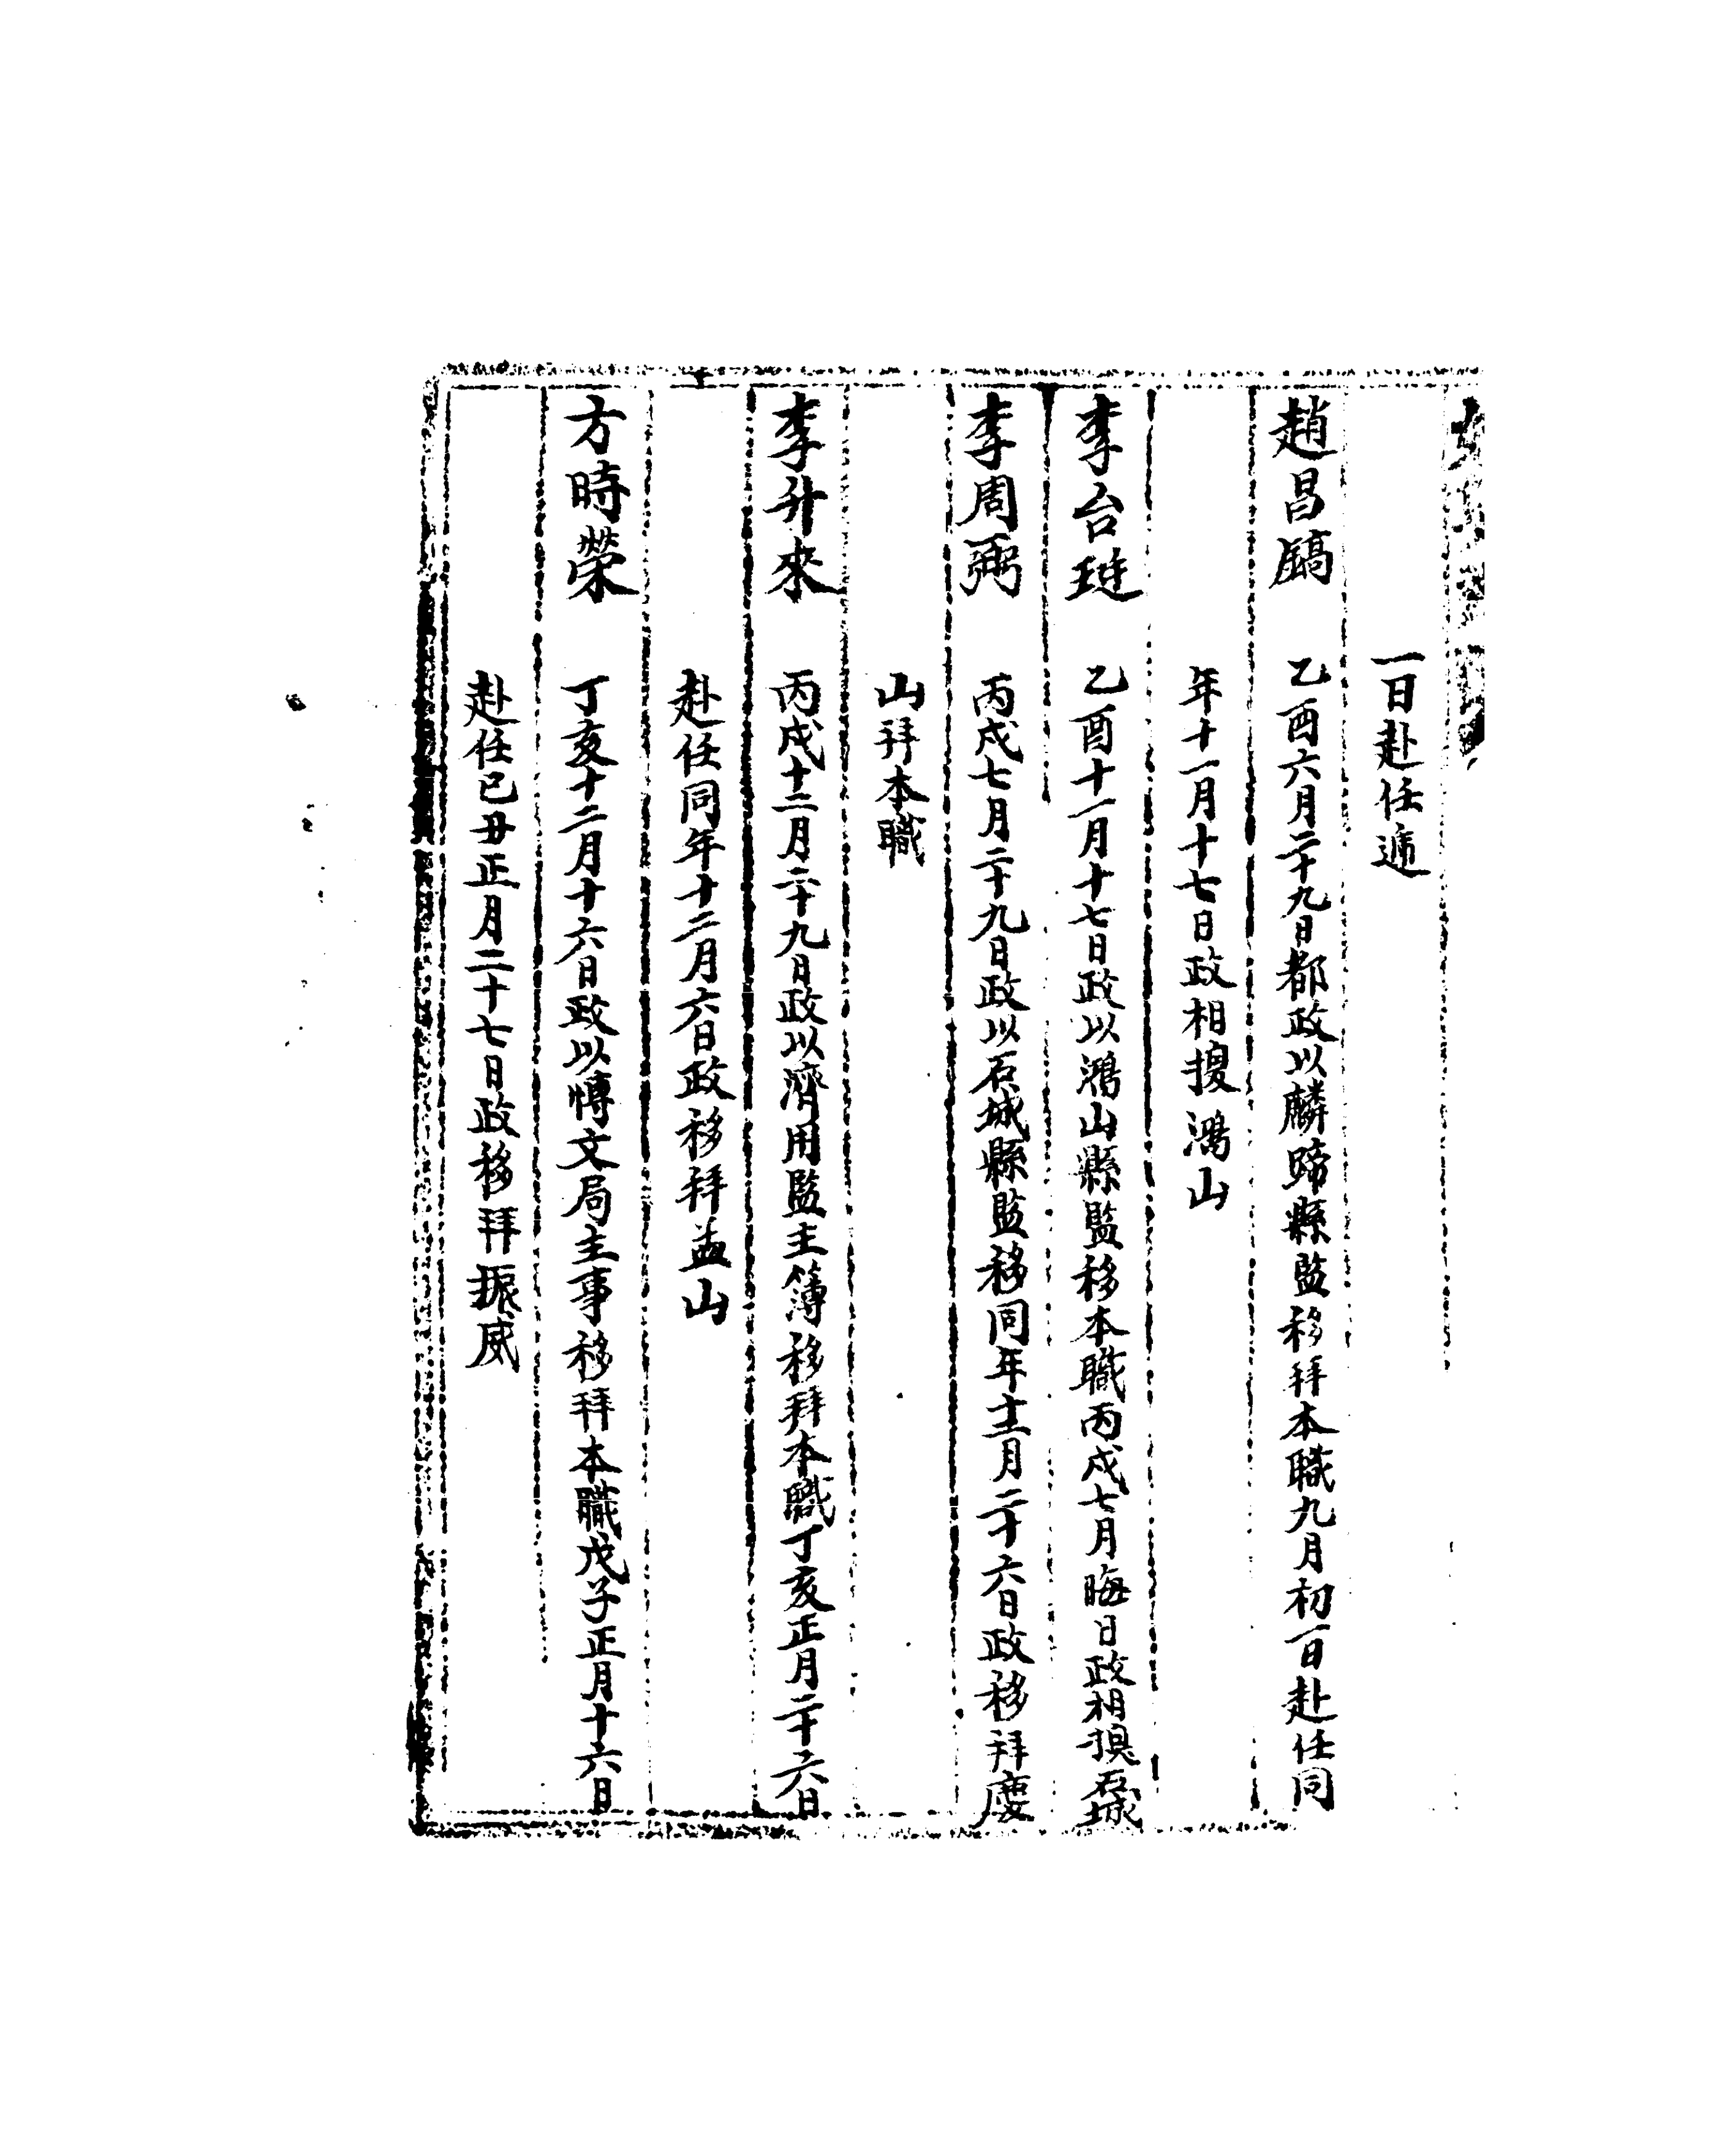 一日赴任遞
趙昌鎬 乙酉六月二十九日都政以麟蹄縣監移拜本職九月初一日赴任同
年十一月十七日政相換鴻山
李台珽 乙酉十一月十七日政以鴻山縣監移本職丙戌七月晦日政相換石城
李周弼 丙戌七月二十九日政以石城縣監移同年十二月二十六日政移拜慶
山拜本職
李升來 丙戌十二月二十九日政以濟用監主簿移拜本職丁亥正月二十六日
赴任同年十二月六日政移拜孟山
方時榮 丁亥十二月十六日政以博文局主事移拜本職戊子正月十六日
赴任己丑正月二十七日政移拜振威